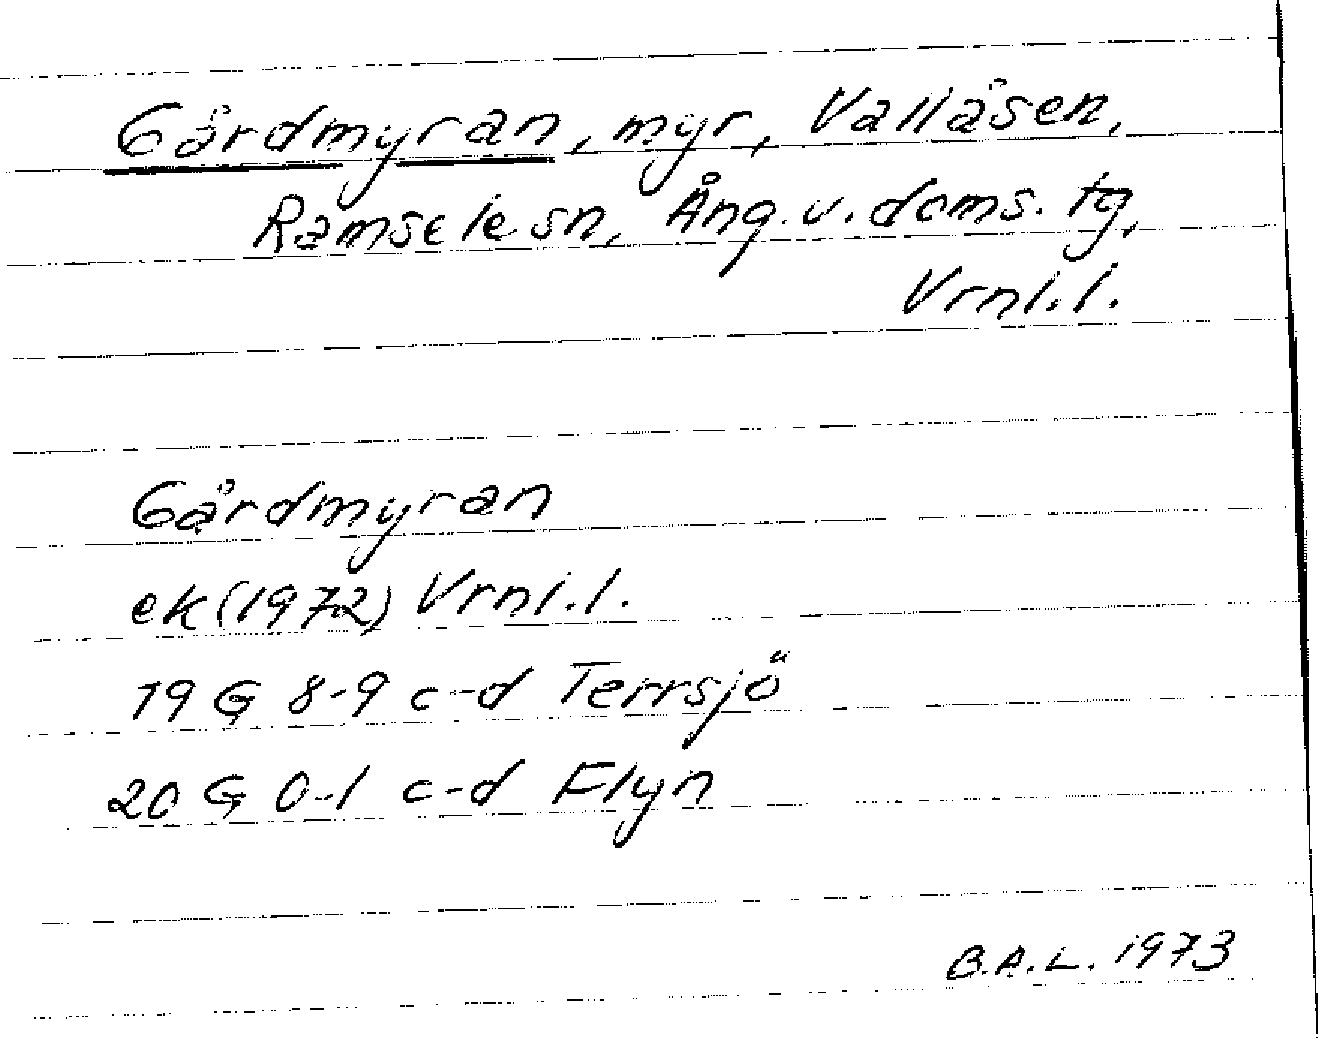 Gårdmyran, myr, Vallåsen,
Ramsele sn, Ång. v. doms. tg,
Vrnl. l.
Gårdmyran
ek (1972) Vrnl. l.
19 G 8-9 c-d Terrsjö
20 G 0-1 c-d Flyn
B.A.L. 1973